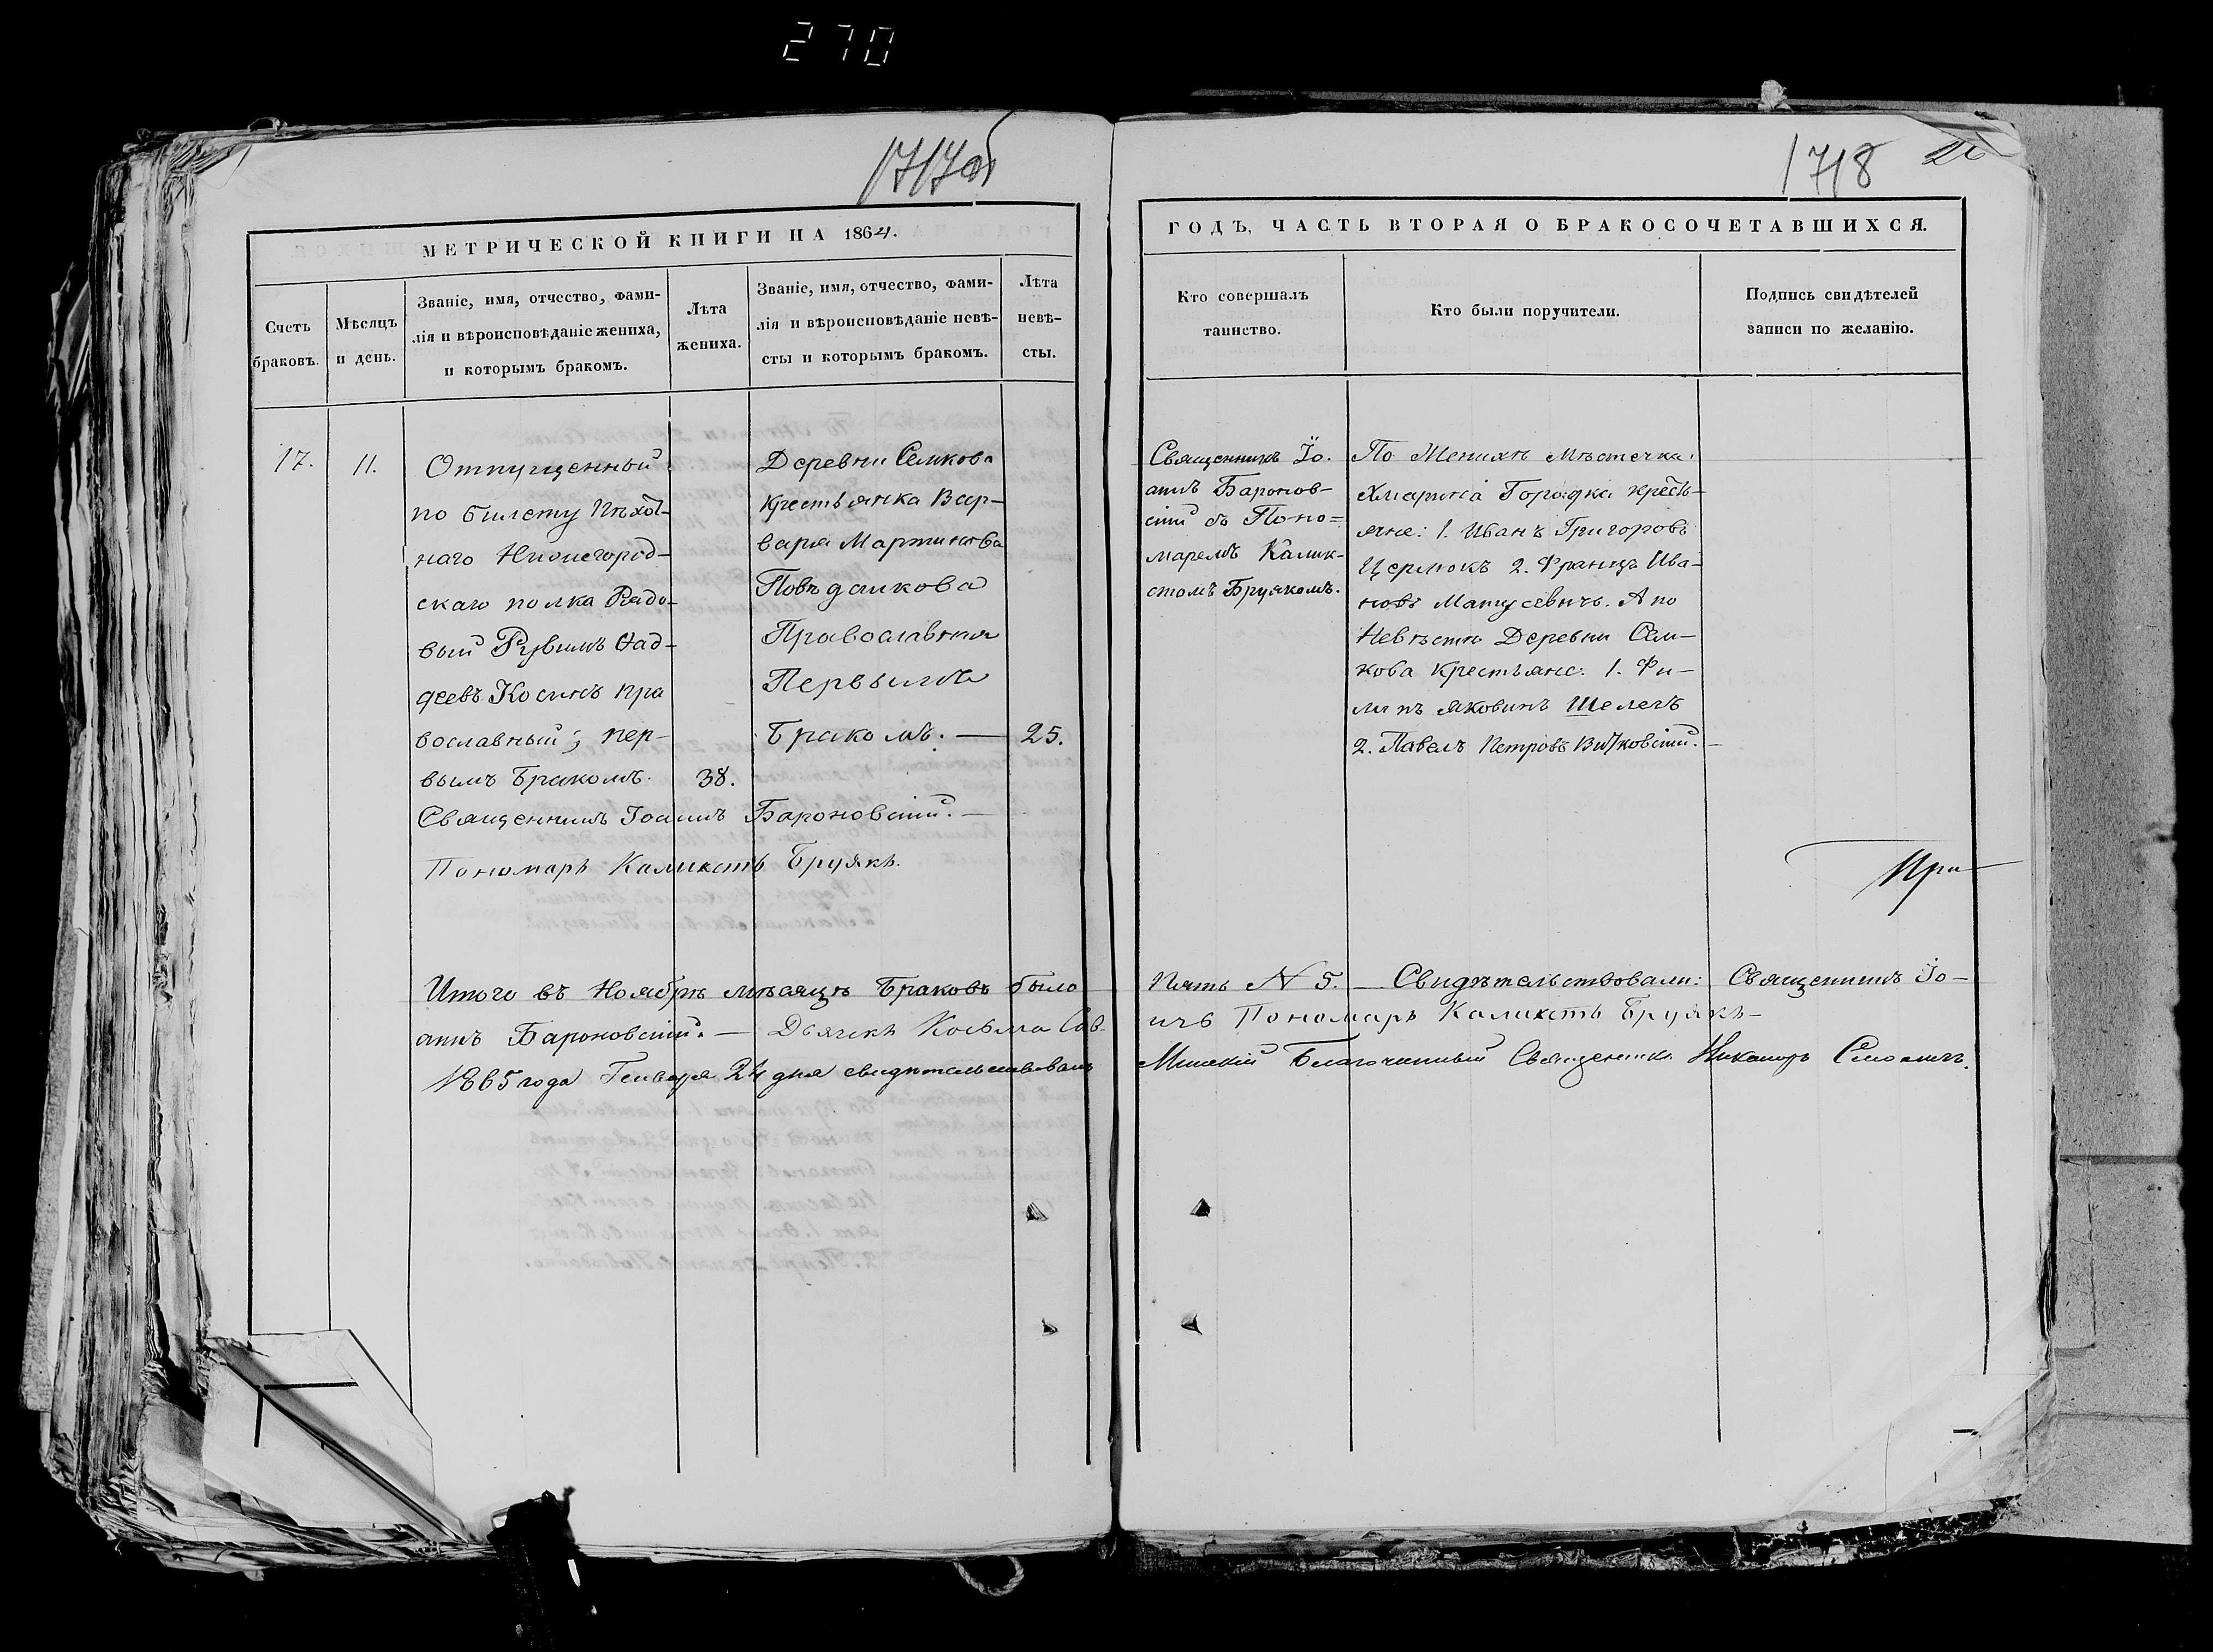 270
1717об
1718
МЕТРИЧЕСКОЙ КНИГИ НА 1864.
Счетъ
браковъ.
Мѣсяцъ
и день.
Званіе, имя, отчество, фами-
лія и вѣроисповѣданіе жениха,
и которымъ бракомъ.
Лѣта
жениха.
Званіе, имя, отчество, фами-
лія и вѣроисповѣданіе невѣ-
сты и которымъ бракомъ.
Лѣта
невѣ-
сты.
17.
11.
Отпущенный
по билету Пѣхот-
наго Нижегород-
скаго полка Рядо-
вый Рувимъ Ѳад-
деевъ Косинъ пра
вославный; пер-
вымъ Бракомъ.
38.
Деревни Семкова
крестьянка Вар-
вара Мартинова
Повѣдайкова
Православная
Первымъ
Бракомъ. —
25.
Священникъ Іоаннъ Бароновскій. —
Пономарь Каликстъ Бруякъ.
ГОДЪ, ЧАСТЬ ВТОРАЯ О БРАКОСОЧЕТАВШИХСЯ.
Кто совершалъ
таинство.
Кто были поручители.
Подпись свидѣтелей
записи по желанію.
Священникъ Іо-
аннъ Баронов-
скій съ Поно=
маремъ Калик-
стомъ Бруякомъ.
По Женихѣ Мѣстечка
Хмарина Городка кресть-
яне: 1. Иванъ Григоровъ
2. Францъ Ива-
новъ Матусевичъ. А по
Невѣстѣ Деревни Сем-
кова крестьяне: 1. Фи-
липъ Яковинъ Шелегъ
2. Павелъ Петровъ Витковскій. —
При
Итого въ Ноябрѣ мѣсяцѣ Браковъ было Пять N 5. — Свидѣтельствовали: Священникъ Іо-
аннъ Бароновскій. — Дьячекъ Косьма Пономарь Каликстъ Бруякъ —
1865 года Генваря 24 дня свидѣтельствовалъ Минскій Благочинный Священникъ Никаноръ Смоличъ.